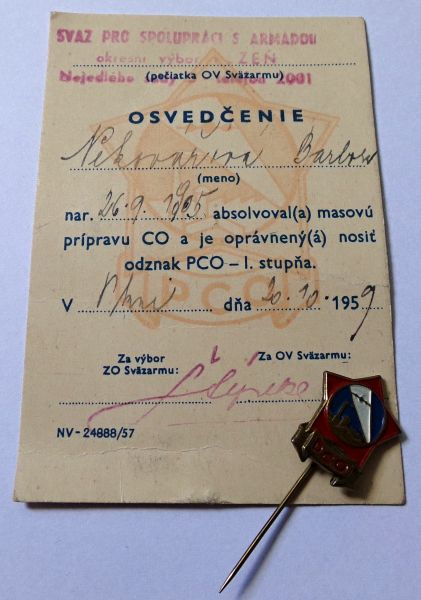 SVAZ PRO SPOLUPRÁCI S ARMÁDOU
okresní výbor ZEŇ
Nejedlého sady telefon 2001
(pečiatka OV Sväzarmu)
OSVEDČENIE
(meno)
nar. 26.9.1935 absolvoval(a) masovú
prípravu CO a je oprávnený(á) nosiť
odznak PCO – I. stupňa.
V Plzni dňa 20.10. 1959
Za výbor Za OV Sväzarmu:
ZO Sväzarmu:
NV-24888/57
PCO
PCO